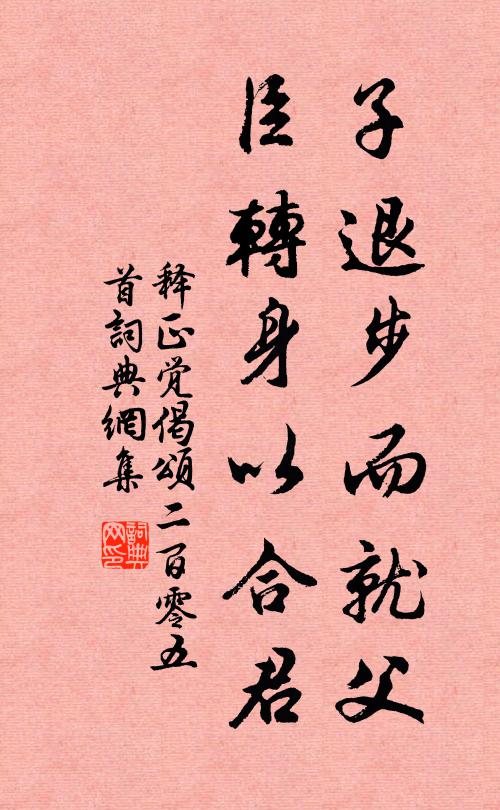 子退步而就父
臣轉身以合君
释正觉偈頌二百零五
首詞典網集
詞典网印